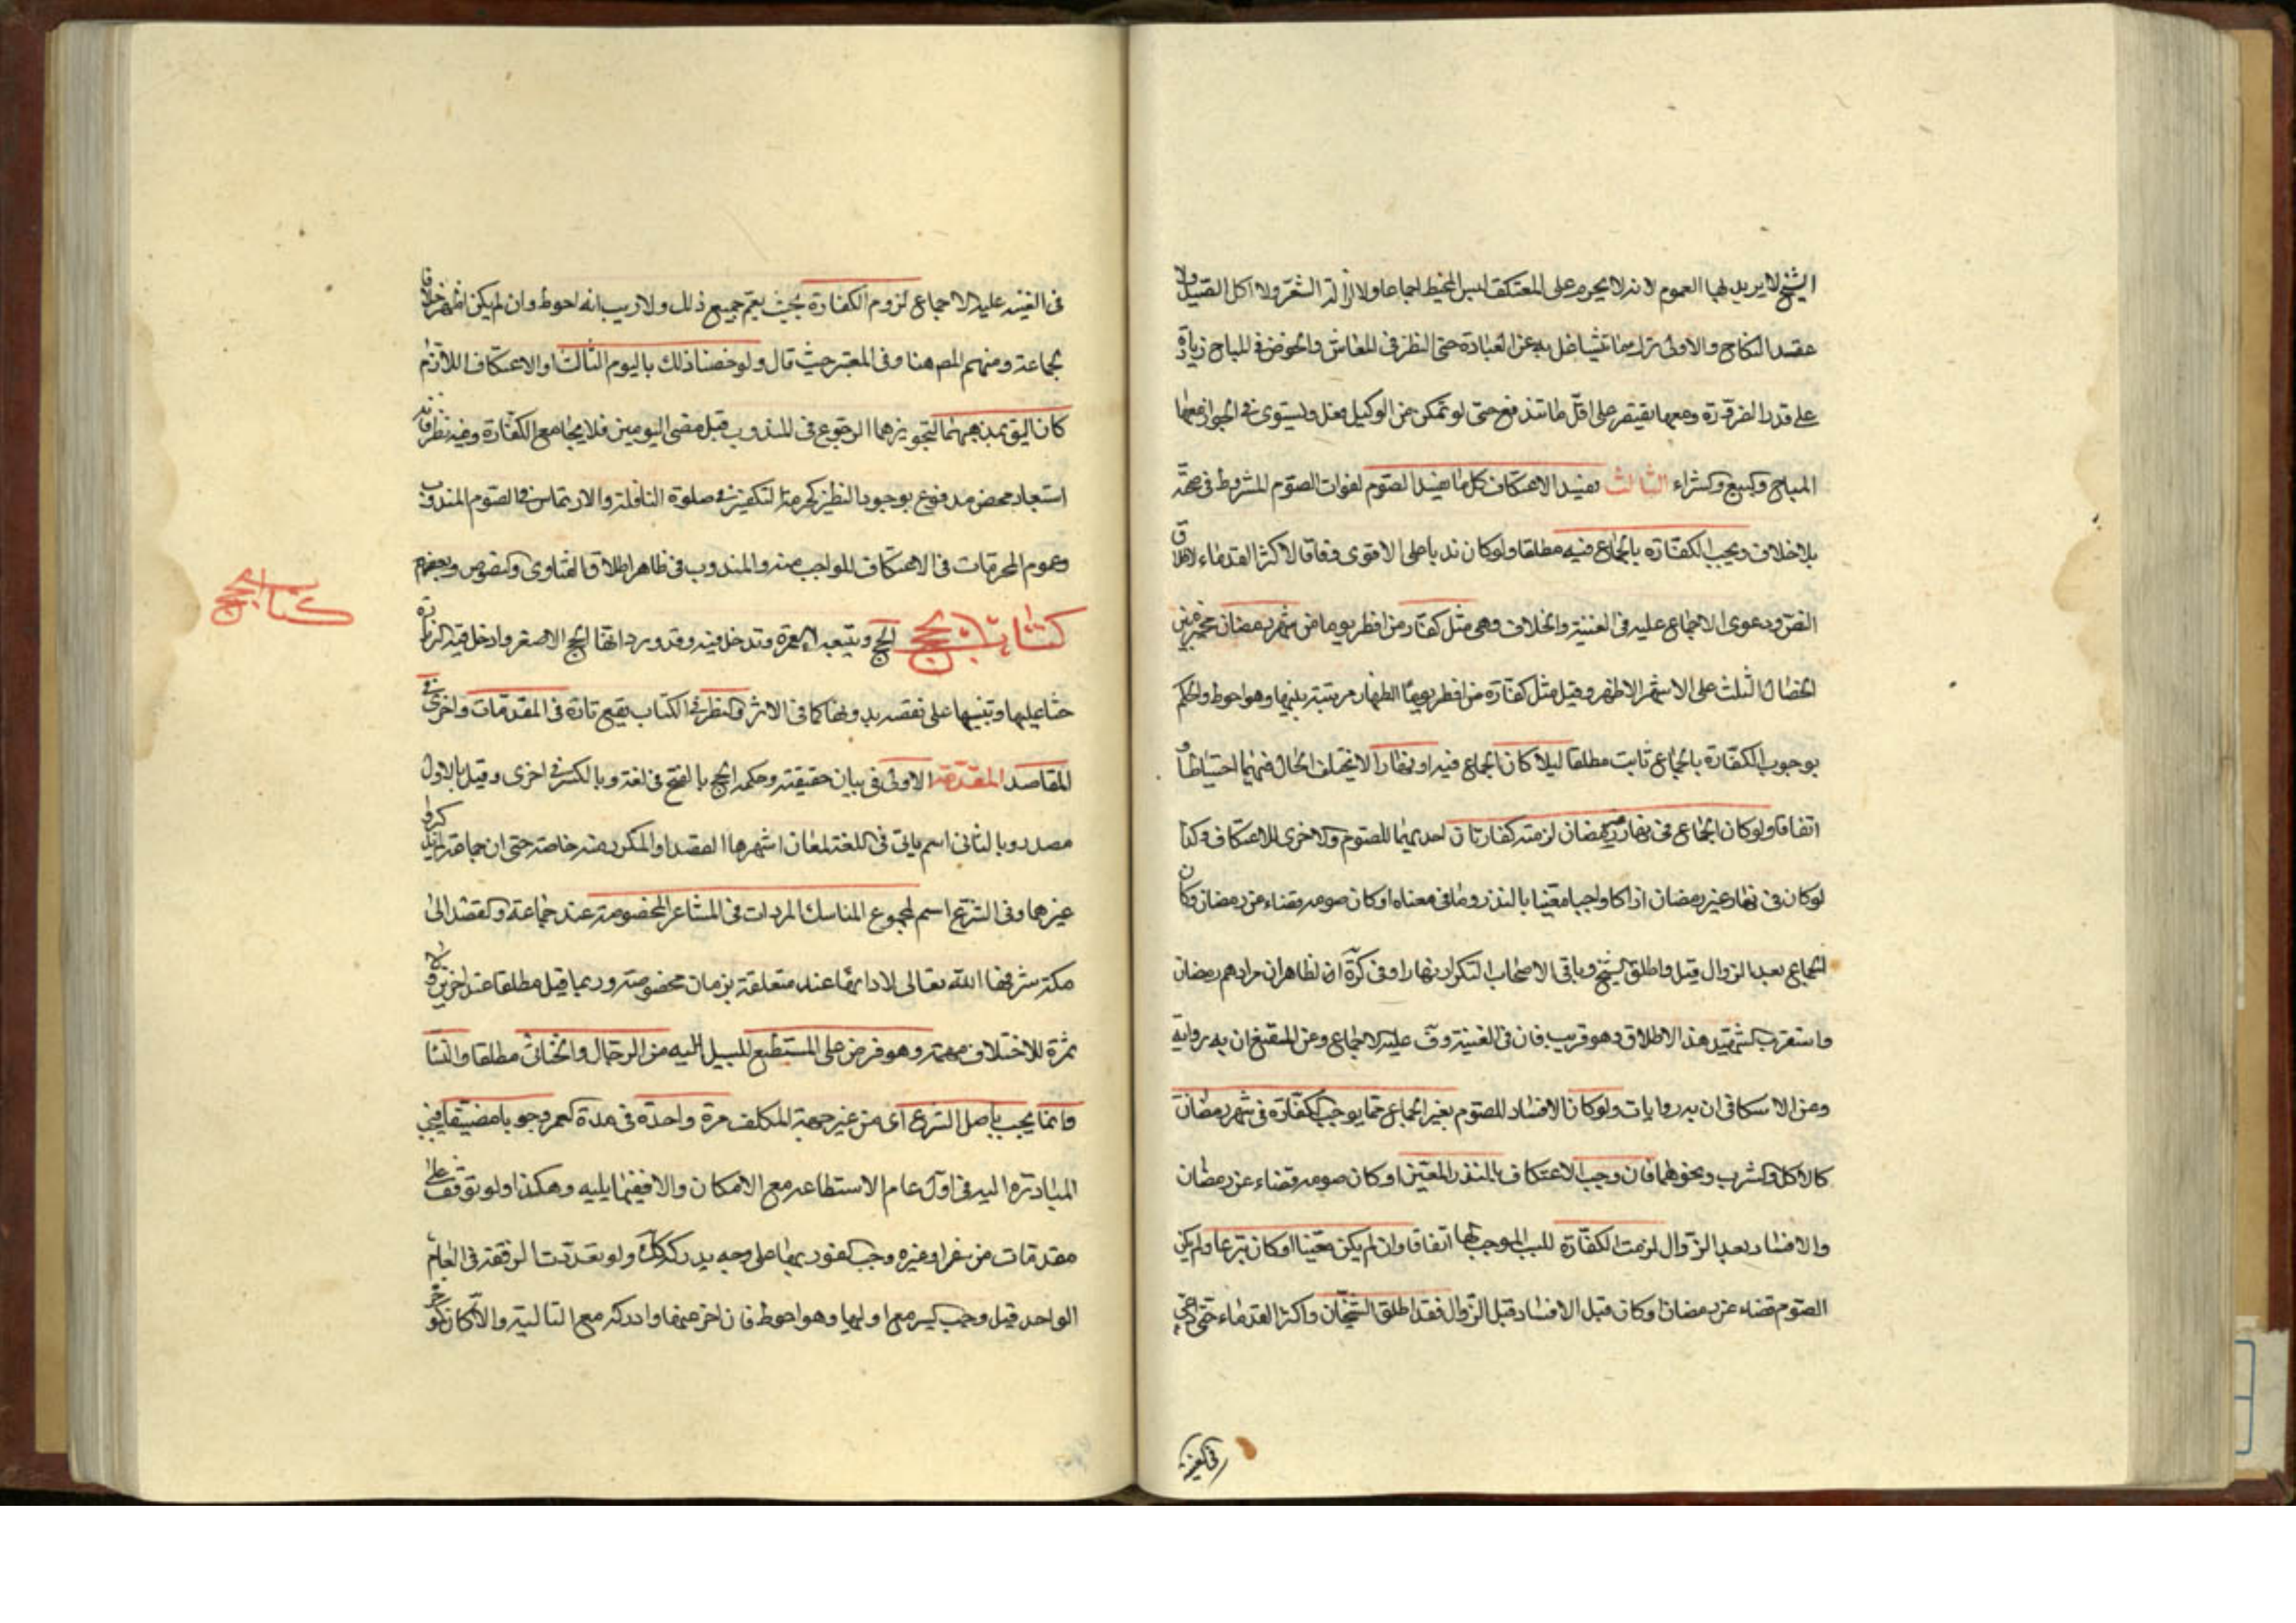 الشيخ لا يريد بها العموم لانه لا يحرم على المعتكف لبس المخيط اجماعا ولا ازالة الشعر ولا اكل الصيد ولا
عقد النكاح والاولى ترك ما تشاغل به عن العبادة حتى النظر في المعاش والخوض في المباح زيادة
على قدر الضرورة ومعها يقتصر على اقل ما تندفع حتى لو تمكن من الوكيل فعل ويستوى في الجواز معها
المباح وكبيع وكشراء الثالث يفسد الاعتكاف كل ما يفسد الصوم لفوات الصوم المشروط في صحته
بلا خلاف ويجب الكفارة بالجماع فيه مطلقا ولو كان ندبا على الاقوى وفاقا لاكثر القدماء لاطلاق
النص ودعوى الاجماع عليه في الغنية والخلاف وهى مثل كفارة من افطر يوما من شهر رمضان مخير بين
الخصال الثلث على الاشهر الاظهر وقيل مثل كفارة الظهار مرتبة بينها وهو احوط والحكم
بوجوب الكفارة بالجماع ثابت مطلقا ليلا كان الجماع فيه او نهارا لا يختلف الحال فيهما احتياطا و
اتفاقا ولو كان الجماع في نهار رمضان لزمته كفارتان احديهما للصوم والاخرى للاعتكاف وكذا
لو كان في نهار غير رمضان اذا كان واجبا معينا بالنذر وما في معناه او كان صومه قضاء عن رمضان وكان
الجماع بعد الزوال قيل واطلق الشيخ وباقى الاصحاب التكرار نهارا وفى كرة ان الظاهر ان مرادهم رمضان
واستقرب الشهيد هذا الاطلاق وهو قريب فان في الغنية وف عليه الاجماع وعن المقنع ان به رواية
وعن الاسكافى ان به روايات ولو كان الافساد للصوم بغير الجماع مما يوجب الكفارة في شهر رمضان
كالاكل والشرب ونحوهما فان وجب الاعتكاف بالنذر المعين او كان صومه قضاء عن رمضان
والافساد بعد الزوال لزمت الكفارة للسبب الموجب لها اتفاقا وان لم يكن معينا او كان تبرعا ولم يكن
الصوم قضاء عن رمضان او كان قبل الافساد قبل الزوال فقد اطلق الشيخان واكثر القدماء حتى ادعى
في الغنية
في الغنية عليه الاجماع لزوم الكفارة بحيث يعم جميع ذلك ولا ريب انه احوط وان لم يكن اظهر خلافا
لجماعة ومنهم المص هنا وفى المعتبر حيث قال ولو خصنا ذلك باليوم الثالث او الاعتكاف اللازم
كان اليق بمذهبهما لتجويزهما الرجوع في المندوب قبل مضى اليومين فلا يجامع الكفارة وفيه نظر فانه
استبعاد محض مدفوع بوجود النظير كحرمة التكفير في صلوة النافلة والارتماس في الصوم المندوب
وعموم المحرمات في الاعتكاف للواجب منه والمندوب في ظاهر اطلاق الفتاوى والنصوص وبعضهم
كتاب الحج الحج ويتبعه العمرة وتدخل فيه وقد ورد انها الحج الاصغر وادخل فيه الزيارة
حثا عليها وتنبيها على نقصه بدونها كما في الاثر والنظر في الكتاب يقع تارة في المقدمات واخرى في
المقاصد المقدمة الاولى في بيان حقيقته وحكمه الحج بالفتح في لغة وبالكسر في اخرى وقيل بالاول
مصدر وبالثانى اسم ياتى في اللغة لمعان اشهرها القصد او المكرر منه خاصة حتى ان جماعة لم يذكروا
غيرهما وفى الشرع اسم لمجموع المناسك المؤدات في المشاعر المخصوصة عند جماعة والقصد الى
مكة شرفها الله تعالى لادائها عندها متعلقة بزمان مخصوصة وربما قيل مطلقا عند اخرين ولا
ثمرة للاختلاف مهمة وهو فرض على المستطيع للسبيل اليه من الرجال والخناثى مطلقا والنساء
وانما يجب باصل الشرع اى من غير جهة المكلف مرة واحدة في مدة العمر وجوبا مضيقا فيجب
المبادرة اليه في اول عام الاستطاعة مع الامكان والا ففيما يليه وهكذا ولو توقف على
مقدمات من سفر او غيره وجب الفور بها على وجه يدركه كك ولو تعددت الرفقة في العام
الواحد قيل وجب السير مع اوليها وهو احوط فان اخر عنها وادركه مع التالية والا كان كمؤخر
كتاب الحج